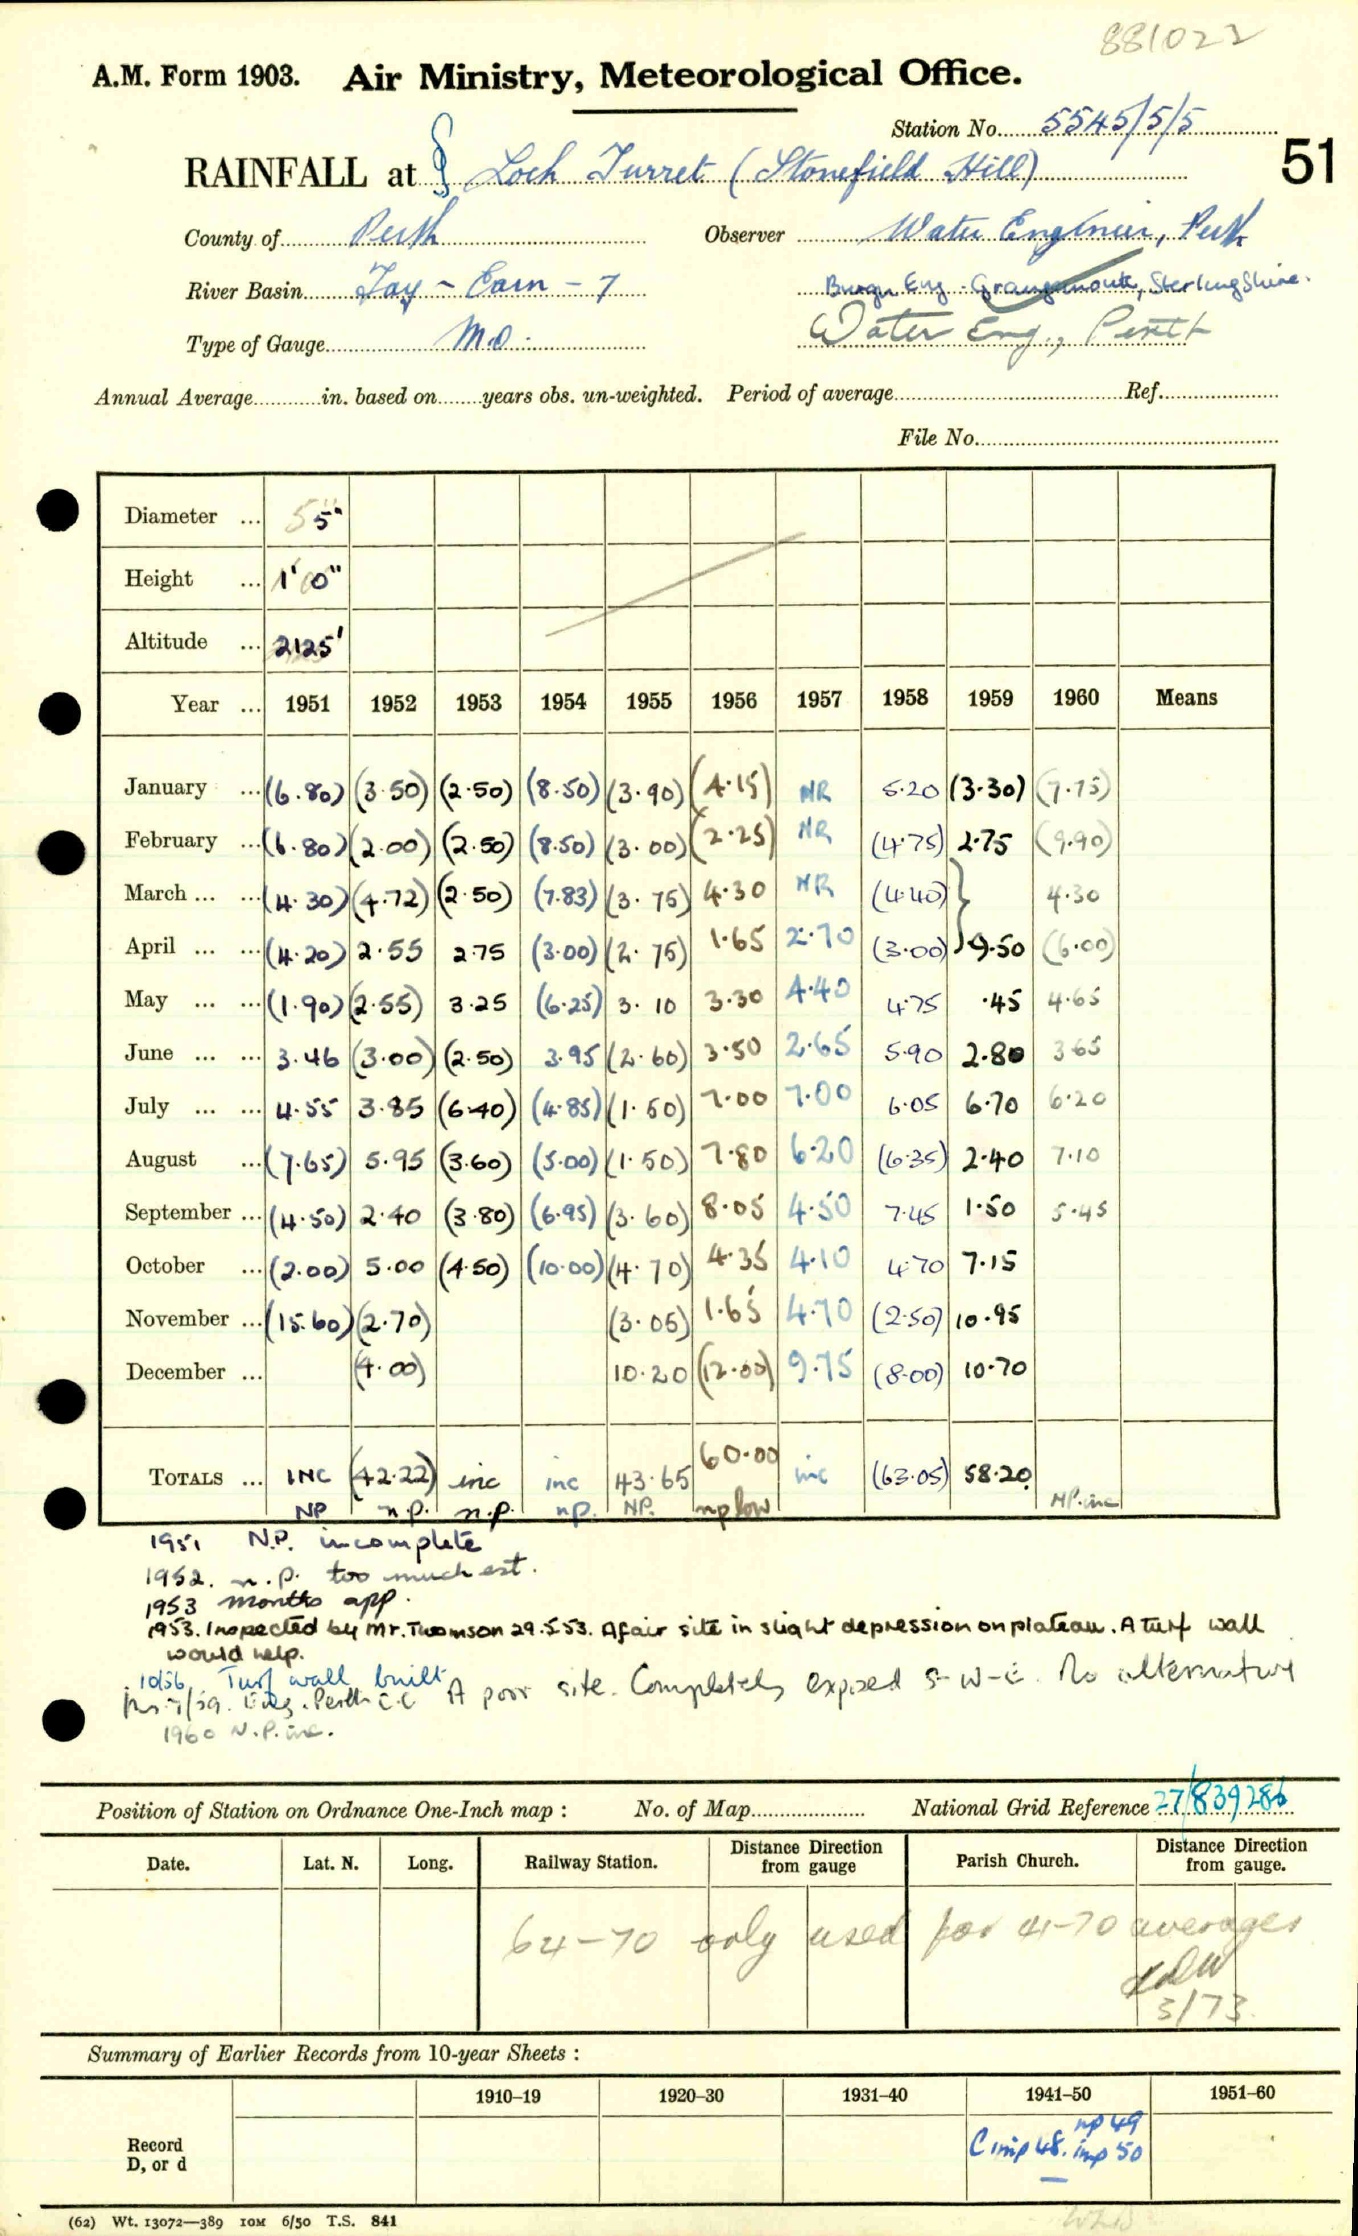 881022
A.M. Form 1903. Air Ministry, Meteorological Office.
Station No. 5545/5/5
51
RAINFALL at § Loch Turret (Stonefield Hill)
County of Perth Observer Water Engineer, Perth
River Basin Tay - Earn - 7 Burgh Eng. Grangemouth, Sterlingshire.
Type of Gauge M.O. Water Eng., Perth
Annual Average in. based on years obs. un-weighted. Period of average Ref.
File No.
Diameter ... 5 5"
Height ... 1' 0"
Altitude ... 2125'
Year ... 1951 1952 1953 1954 1955 1956 1957 1958 1959 1960 Means
January ... (6.80) (3.50) (2.50) (8.50) (3.90) (4.15) NR 5.20 (3.30) (7.75)
February ... (6.80) (2.00) (2.50) (8.50) (3.00) (2.25) NR (4.75) 2.75 (9.90)
March ... ... (4.30) (4.72) (2.50) (7.83) (3.75) 4.30 NR (4.40) } 4.30
April ... ... (4.20) 2.55 2.75 (3.00) (2.75) 1.65 2.70 (3.00) 9.50 (6.00)
May ... ... (1.90) (2.55) 3.25 (6.25) 3.10 3.30 4.40 4.75 .45 4.65
June ... ... 3.46 (3.00) (2.50) 3.95 (2.60) 3.50 2.65 5.90 2.80 3.65
July ... ... 4.55 3.85 (6.40) (4.85) (1.50) 7.00 7.00 6.05 6.70 6.20
August ... (7.65) 5.95 (3.60) (5.00) (1.50) 7.80 6.20 (6.35) 2.40 7.10
September ... (4.50) 2.40 (3.80) (6.95) (3.60) 8.05 4.50 7.45 1.50 5.45
October ... (2.00) 5.00 (4.50) (10.00) (4.70) 4.35 4.10 4.70 7.15
November ... (15.60) (2.70) (3.05) 1.65 4.70 (2.50) 10.95
December ... (4.00) 10.20 (12.00) 9.75 (8.00) 10.70
TOTALS ... INC (42.22) inc inc 43.65 60.00 inc (63.05) 58.20
NP n.p. n.p. np. NP. np low NP.inc
1951 N.P. incomplete
1952. n.p. too much est.
1953 months app.
1953. Inspected by Mr. Thomson 29.5.53. A fair site in slight depression on plateau. A turf wall
would help.
10/56 Turf wall built
Ins 7/59. Perth C.C A poor site. Completely exposed S-W-E. No alternative
1960 N.P.inc.
Position of Station on Ordnance One-Inch map : No. of Map National Grid Reference 27/839286
Date. Lat. N. Long. Railway Station. Distance from gauge Direction Parish Church. Distance from gauge. Direction
64-70 only used for 41-70 averages
3/73.
Summary of Earlier Records from 10-year Sheets :
1910–19 1920–30 1931–40 1941–50 1951–60
Record
D, or d
np 49
C inp 48. inp 50
(62) Wt. 13072—389 10M 6/50 T.S. 841